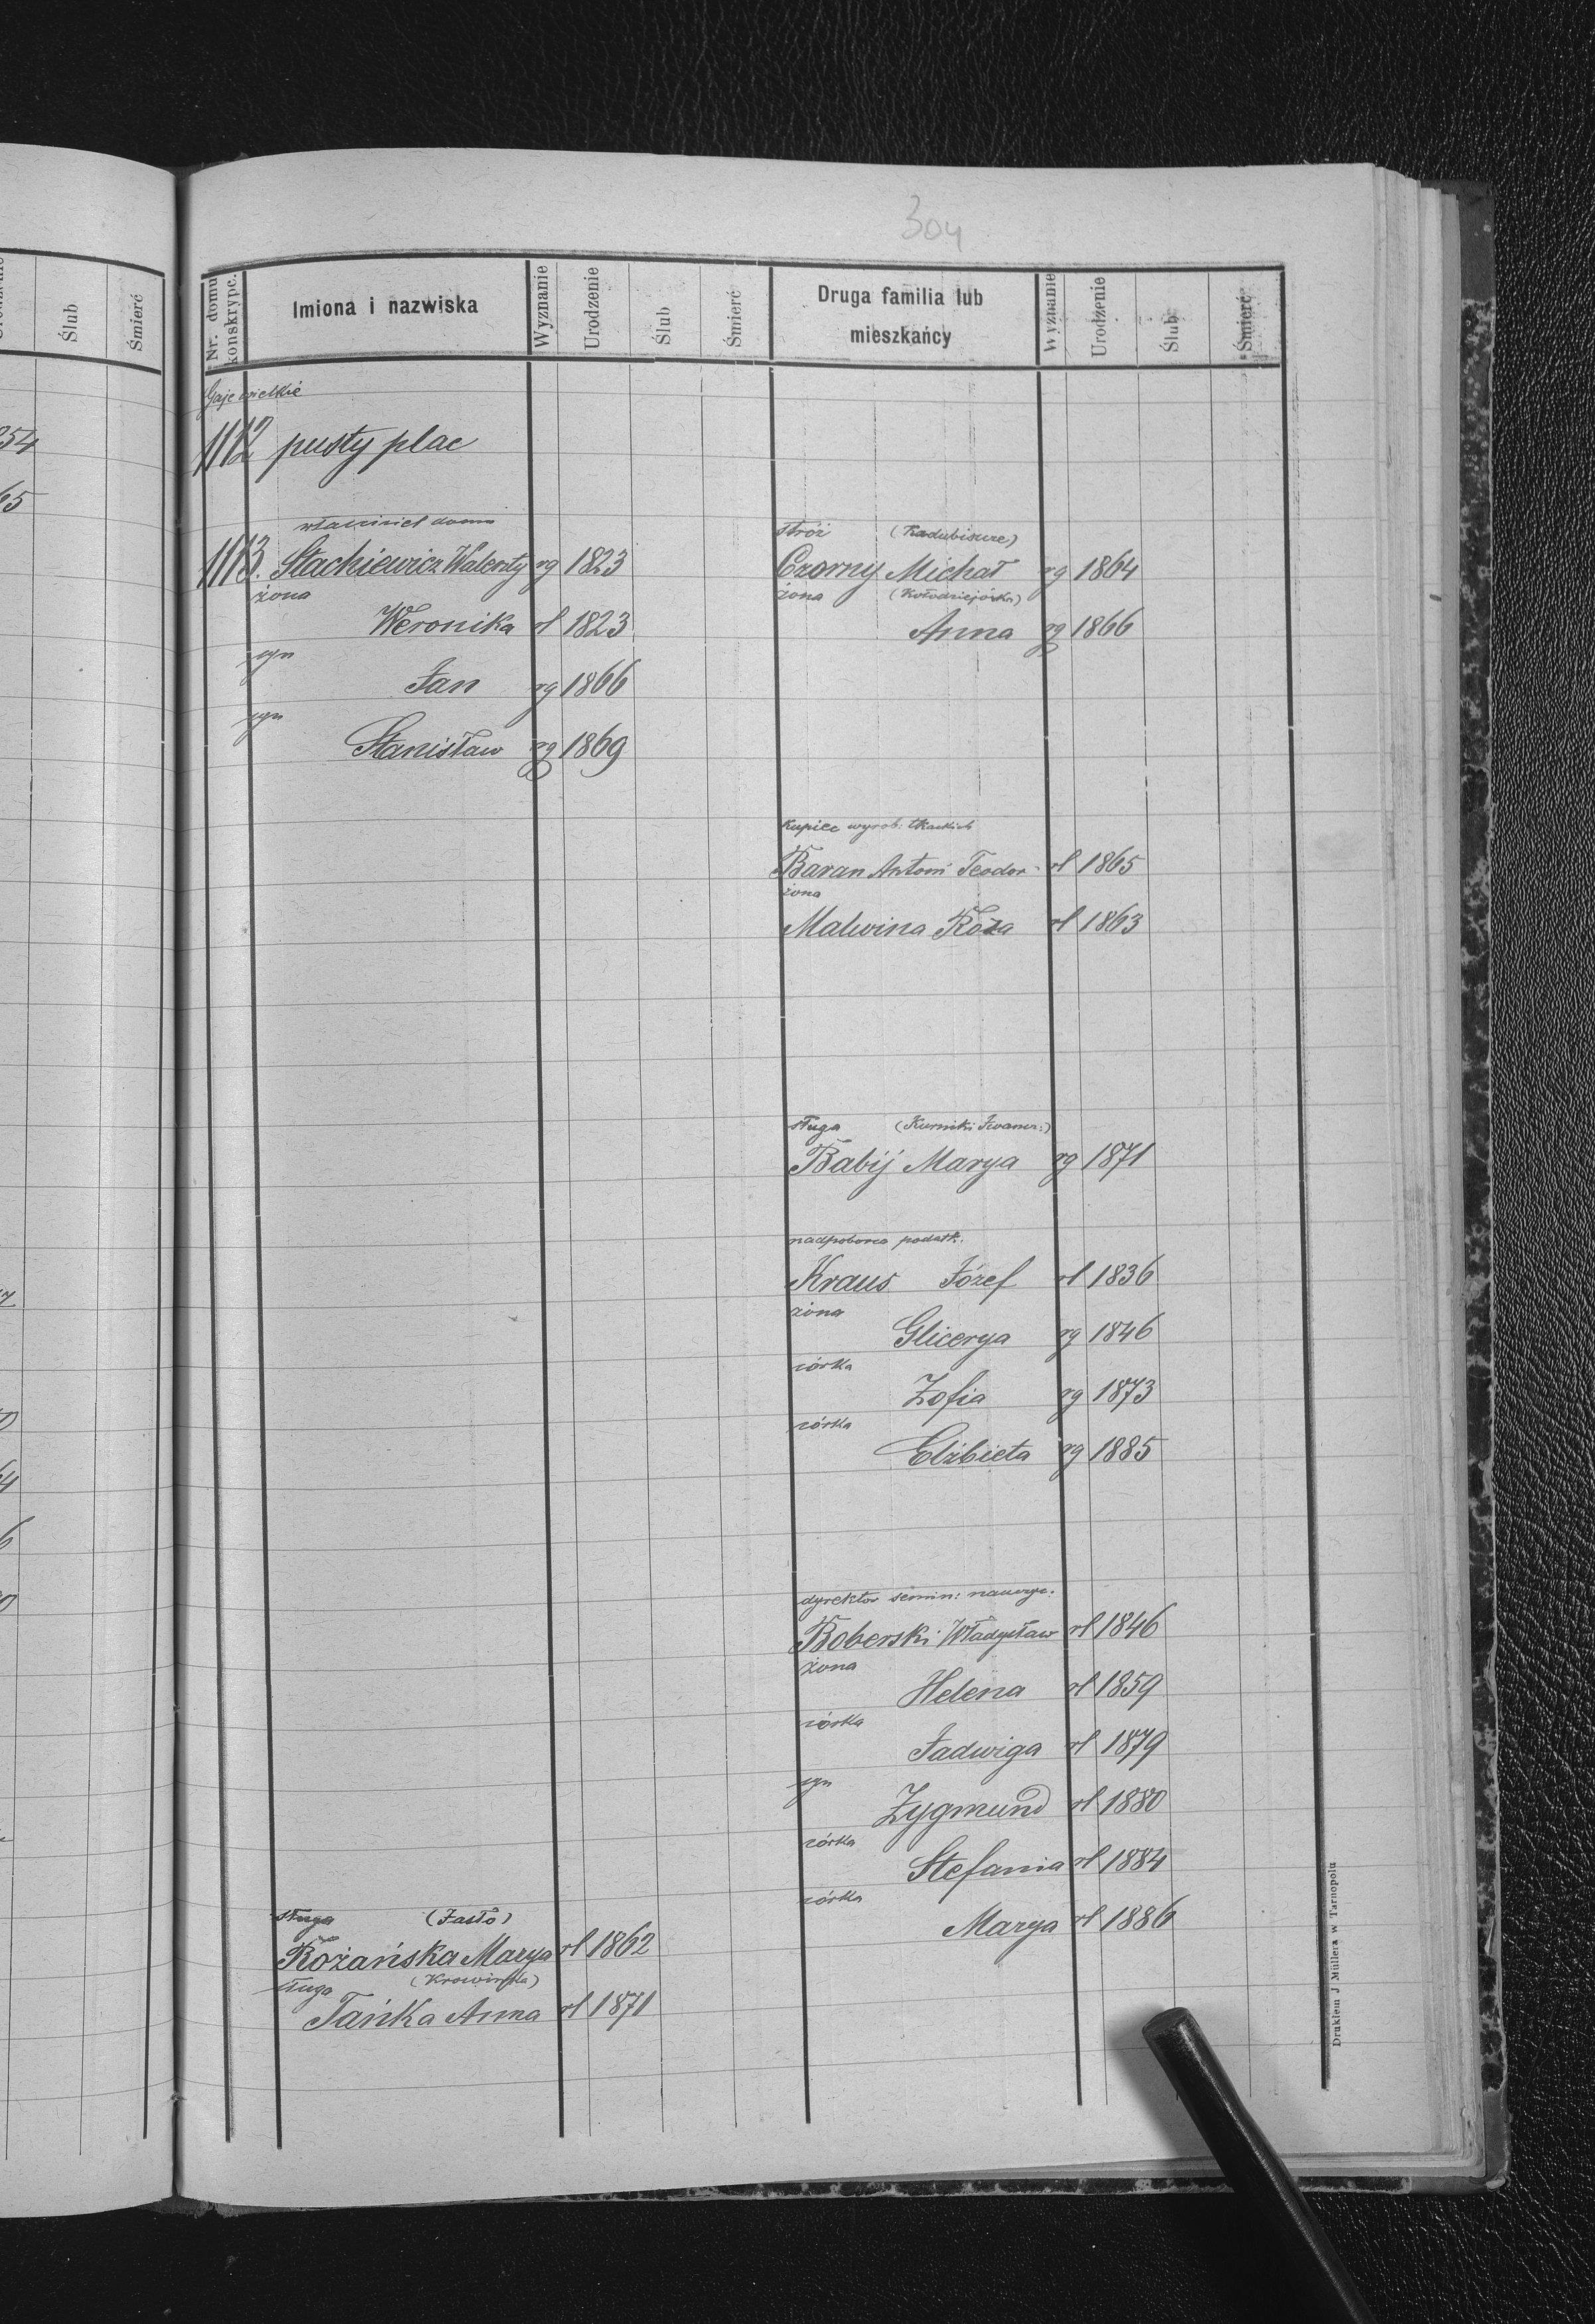 304
Nr. domu konskrypc.
Imiona i nazwiska
Wyznanie
Urodzenie
Ślub
Śmierć
Druga familia lub mieszkańcy
Wyznanie
Urodzenie
Ślub
Śmierć
Gaje wielkie
1112 pusty plac
właściciel domu
1113. Stachiewicz Walenty rg 1823
żona
Weronika rl 1823
syn
Jan rg 1866
syn
Stanisław rg 1869
sługa (Jasło)
Rożańska Marya rl 1862
sługa
Tańka Anna rl 1871
stróż
Czorny Michał rg 1864
żona
Anna rg 1866
kupiec wyrob: tkackich
Baran Antoni Teodor rl 1865
żona
Malwina Róża rl 1863
sługa
Babij Marya rg 1871
nadpoborca podatk.
Kraus Józef rl 1836
żona
Glicerya rg 1846
córka
Zofia rg 1873
córka
Elżbieta rg 1885
dyrektor semin: nauczyc.
Boberski Władysław rl 1846
żona
Helena rl 1859
córka
Jadwiga rl 1879
syn
Zygmund rl 1880
córka
Stefania rl 1884
córka
Marya rl 1886
Drukiem J Müllera w Tarnopolu
Ślub
Śmierć